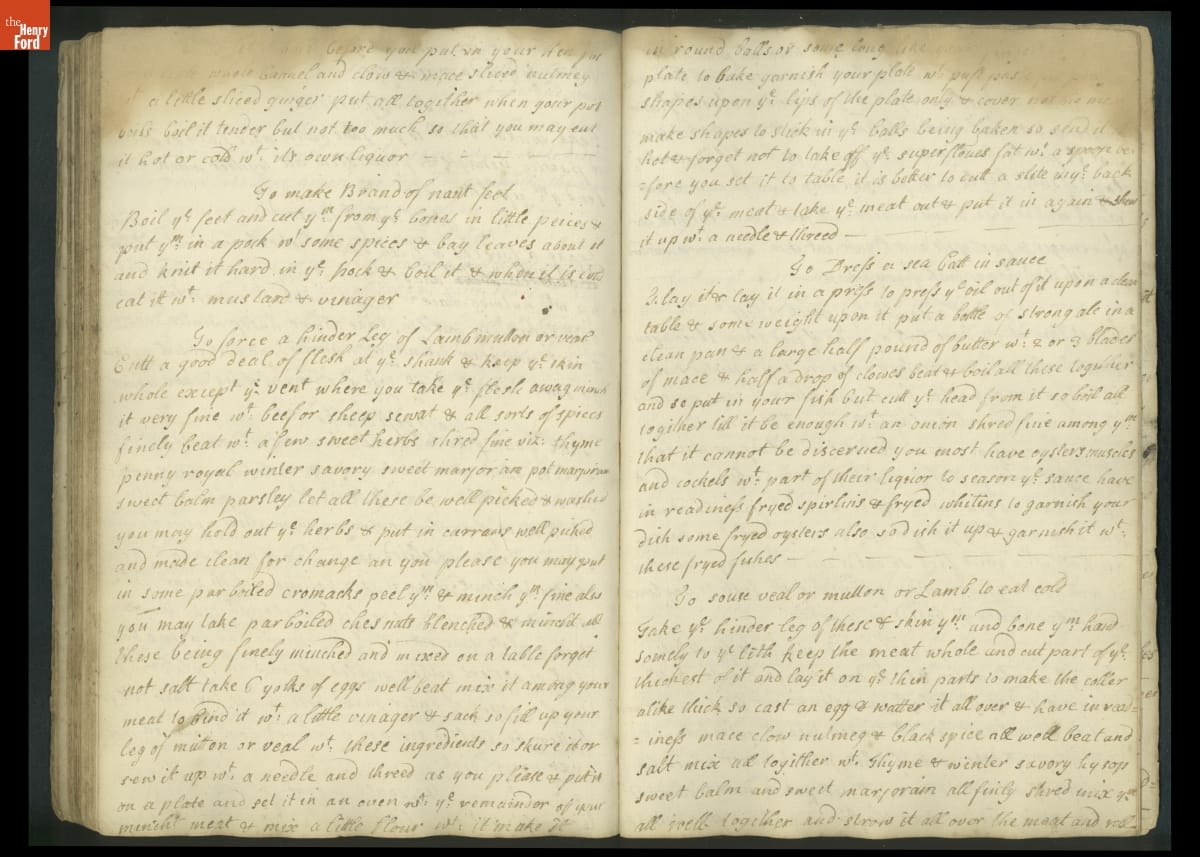 the
Henry
Ford
before you put in your
and clow & mace sliced nutmeg
a little sliced ginger put all together when your pot
boils boil it tender but not too much so that you may eat
it hot or cold wt. its own liquor
To make Brand of nant feet
Boil ye feet and cut ym from ye bones in little peices &
put ym in a pock wt some spices & bay leaves about it
and knit it hard in ye pock & boil it & when it is cold
eat it wt. mustard & vinager
To force a hinder Leg of Lamb mutton or veal
Cutt a good deal of flesh at ye shank & keep ye skin
whole except ye vent where you take ye flesh away minch
it very fine wt. beef or sheep sewat & all sorts of spices
finely beat wt. a few sweet herbs shred fine viz: thyme
penny royal winter savory sweet marjoram pot marjoram
sweet balm parsley let all these be well picked & washed
you may hold out ye herbs & put in currans well picked
and made clean for change an you please you may put
in some parboiled cromacks peel ym & minch ym fine also
you may take parboiled chesnuts blenched & minch'd all
these being finely minched and mixed on a table forget
not salt take 6 yolks of eggs well beat mix it among your
meat to bind it wt. a little vinager & sack so fill up your
leg of mutton or veal wt. these ingredients so skure it or
sew it up wt. a needle and threed as you please & put it
on a plate and set it in an oven wt. ye remainder of your
mincht meat & mix a little flour wt. it make it
in round balls or some long like
plate to bake garnish your plate wt. puff
shapes upon ye lips of the plate only & cover not
make shapes to stick in ye balls being baken so send it
hot & forget not to take off ye superflous fat wt. a spoon be
=fore you set it to table it is better to cutt a slite in ye back
side of ye meat & take ye meat out & put it in again & shew
it up wt. a needle & threed
To Dress a sea Catt in sauce
lay it & lay it in a press to press ye oil out of it upon a clean
table & some weight upon it put a botle of strong ale in a
clean pan & a large half pound of butter wt. 2 or 3 blades
of mace & half a drop of clowes beat & boil all these together
and so put in your fish but cutt ye head from it so boil all
together till it be enough wt. an onion shred fine among ym
that it cannot be discerned you most have oysters muscles
and cockels wt. part of their liquor to season ye sauce have
in readiness fryed spirlins & fryed whitins to garnish your
dish some fryed oysters also so dish it up & garnish it wt.
these fryed fishes
To souse veal or mutton or Lamb to eat cold
Take ye hinder leg of these & skin ym and bone ym hand
somely to ye lith keep the meat whole and cut part of ye
thickest of it and lay it on ye thin parts to make the coller
alike thick so cast an egg & watter it all over & have in readi
=iness mace clow nutmeg & black spice all well beat and
salt mix all together wt. thyme & winter savory hysop
sweet balm and sweet marjorain all finly shred mix ym
all well together and strow it all over the meat and roll